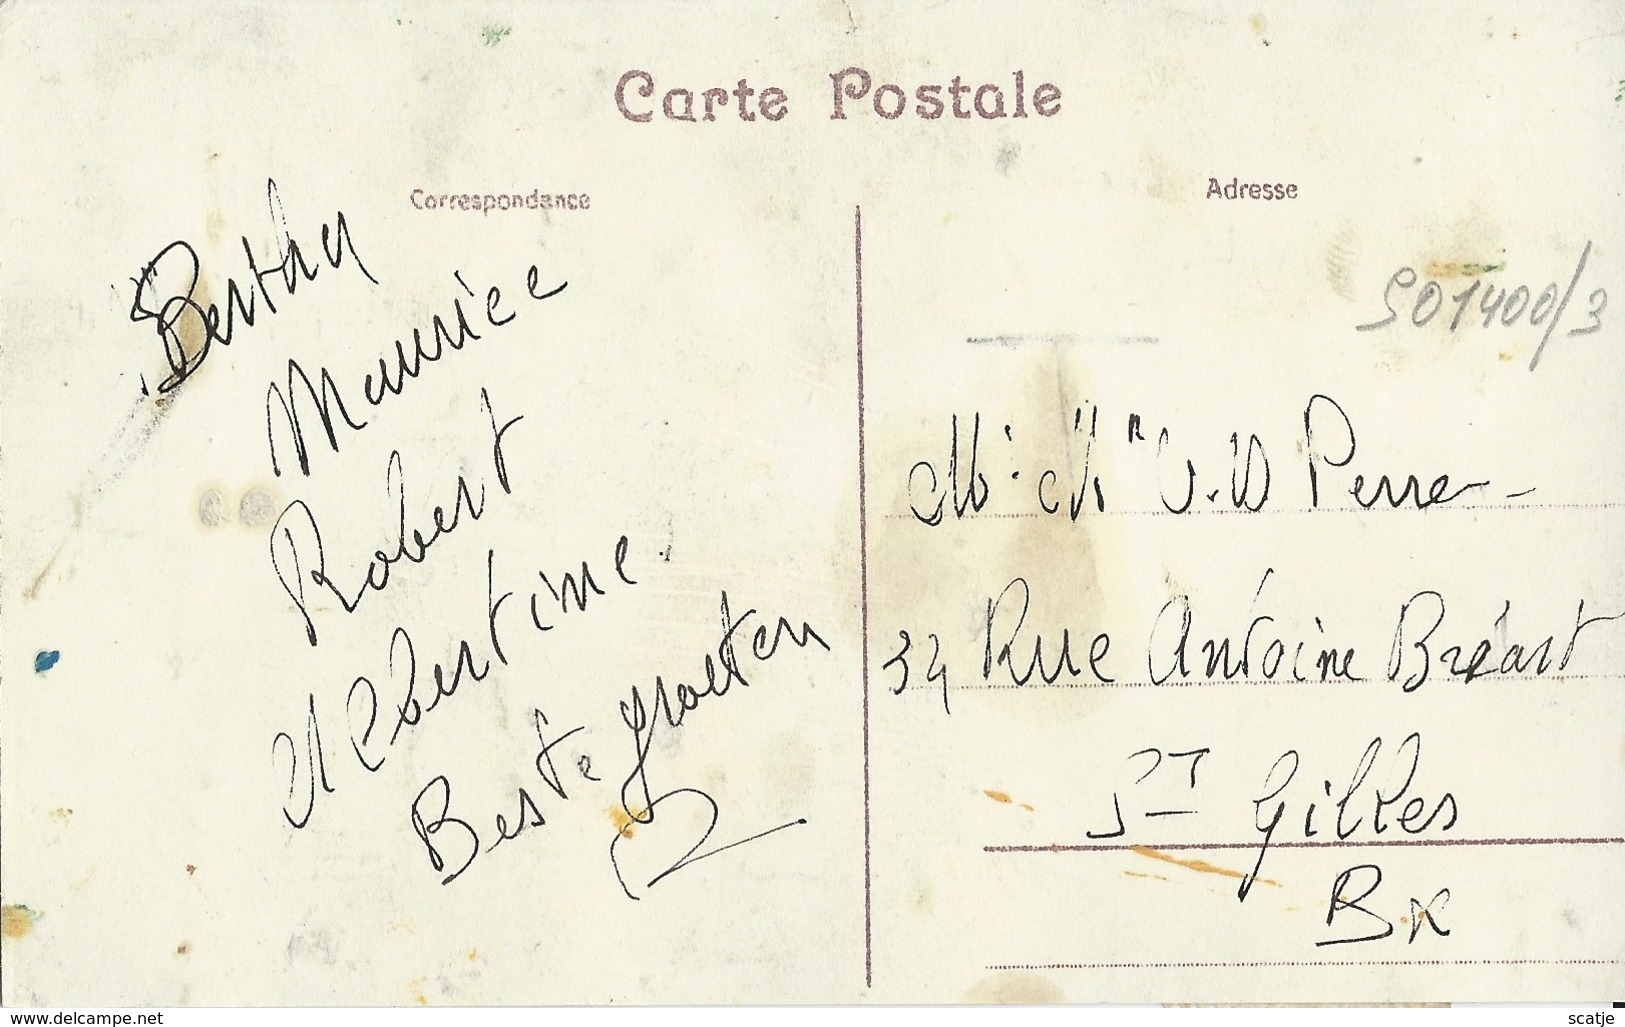 Carte Postale
Correspondance
Adresse
Bertha
Maurice
Robert
Albertine
Beste groeten
501400/3
Perre
34 Rue Antoine Bréart
ST Gilles
BX
www.delcampe.net
scatje